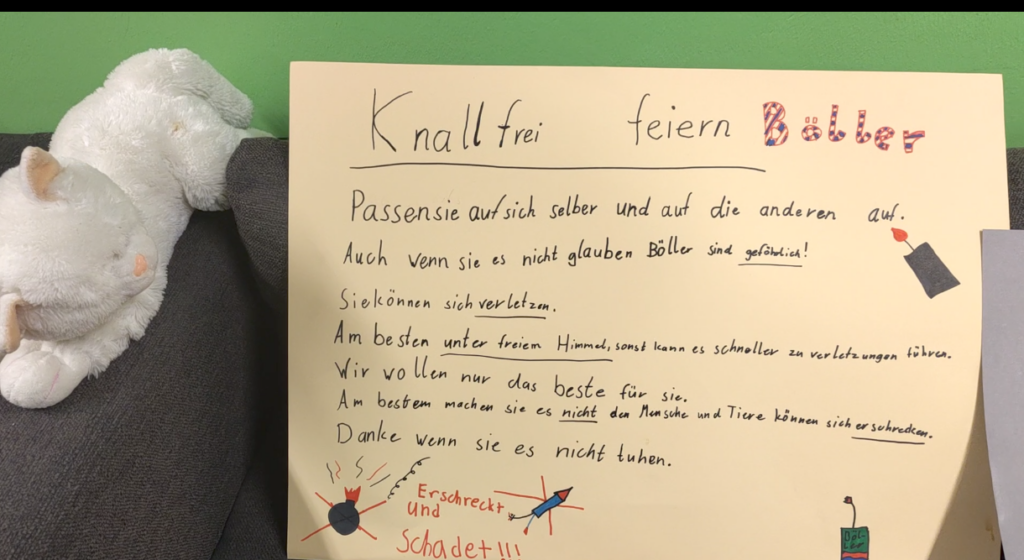 Knallfrei feiern Böller
Passensie auf sich selber und auf die anderen auf.
Auch venn sie es nicht glauben Böller sind gefährlich!
Siekönnen sich verletzen.
Am besten unter freiem Himmel, sonst kann es schneller zu verletzungen führen.
Wir wollen nur das beste für sie.
Am bestem machen sie es nicht den Mensche und Tiere können sich erschrecken.
Danke wenn sie es nicht tuhen.
Erschreckt
und
Schadet!!!
Böl-
ler